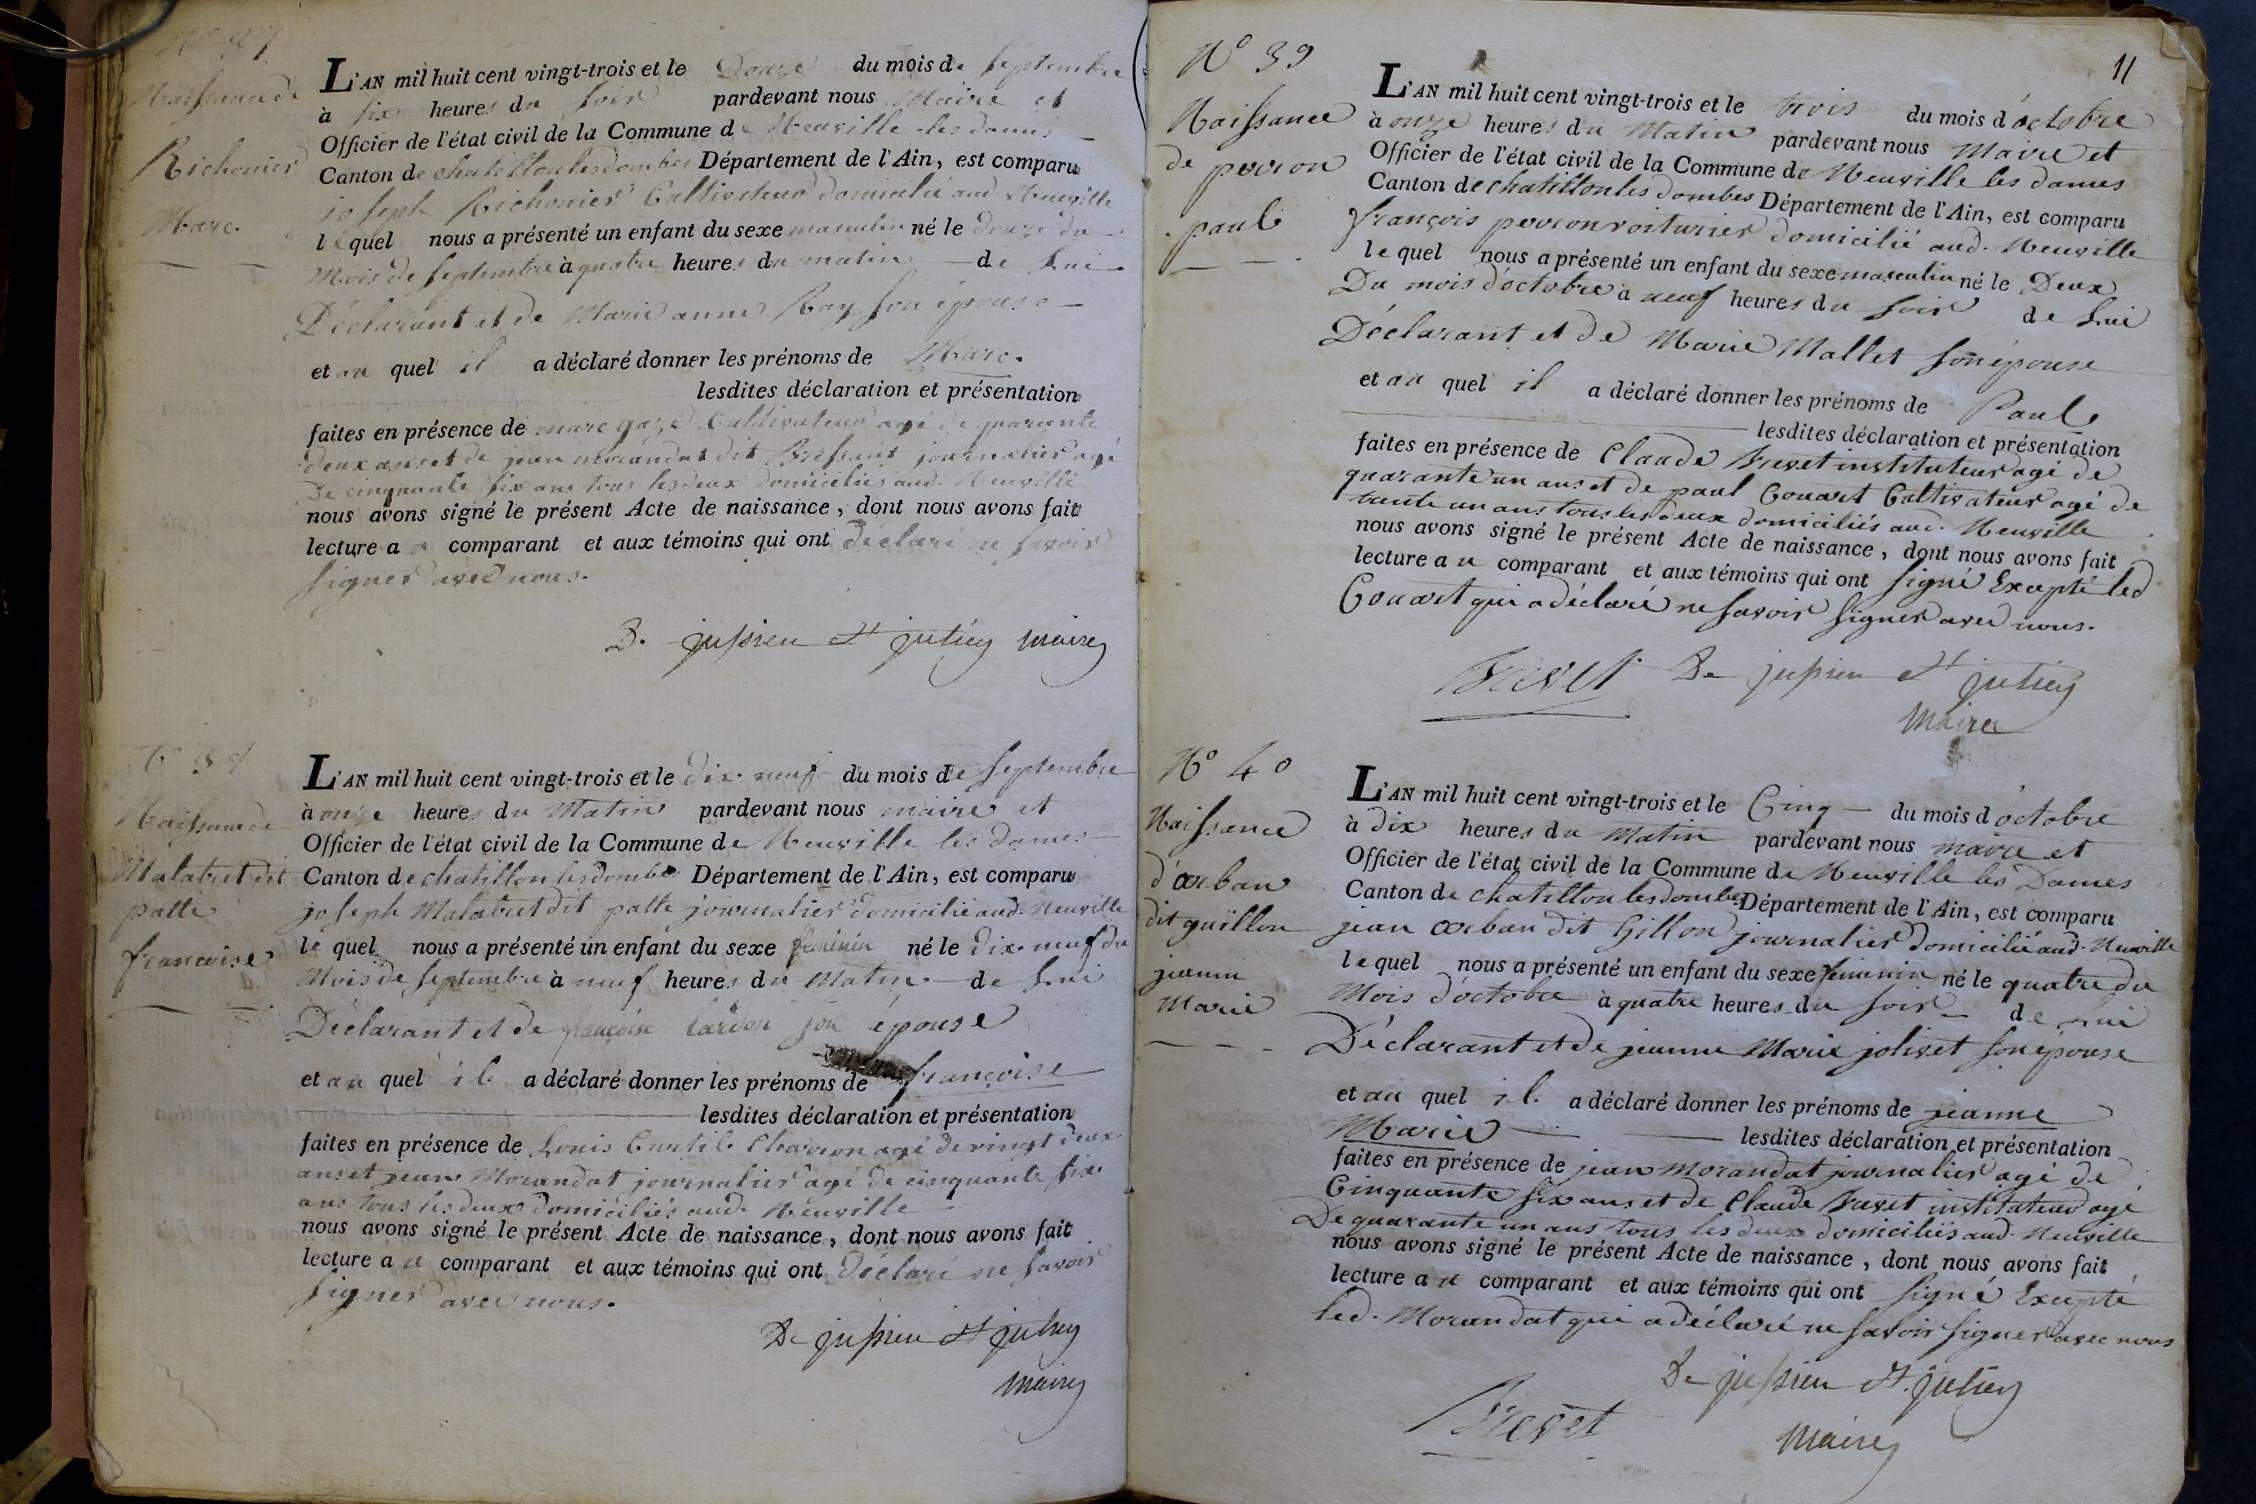 Naissance de
Richonier
Marc.
L'AN mil huit cent vingt-trois et le Douze du mois de septembre
à six heures du soir pardevant nous Maire et
Officier de l'état civil de la Commune de Neuville les dames
Canton de chatillon les dombes Département de l'Ain, est comparu
joseph Richonier Cultivateur domicilié aud. Neuville
lequel nous a présenté un enfant du sexe masculin né le douze du
Mois de septembre à quatre heures du matin de Lui
Déclarant et de Marie anne Ray son épouse
et au quel il a déclaré donner les prénoms de Marc.
lesdites déclaration et présentation
faites en présence de marc gazé Cultivateur agé de quarante
deux ans et de jean morandat dit Bressant journalier agé
De cinquante six ans tous les deux domiciliés aud. Neuville
nous avons signé le présent Acte de naissance, dont nous avons fait
lecture au comparant et aux témoins qui ont déclaré ne savoir
signer avec nous.
D. jussieu St julien maire
Naissance de
Malabret dit
patte
francoise
L'AN mil huit cent vingt-trois et le dix-neuf du mois de septembre
à onze heures du Matin pardevant nous maire et
Officier de l'état civil de la Commune de Neuville les Dames
Canton de chatillon les dombes Département de l'Ain, est comparu
joseph Malabret dit patte journalier domicilié aud. Neuville
lequel nous a présenté un enfant du sexe feminin né le dix-neuf du
Mois de septembre à neuf heures du Matin de Lui
Déclarant et de françoise Cardon son épouse
et au quel il a déclaré donner les prénoms de francoise
lesdites déclaration et présentation
faites en présence de Louis Curtil Charron agé de vingt deux
ans et jean Morandat journalier agé de cinquante six
ans tous les deux domiciliés aud. Neuville
nous avons signé le présent Acte de naissance, dont nous avons fait
lecture au comparant et aux témoins qui ont Déclaré ne savoir
signer avec nous.
De jussieu St julien
maire
11
N° 39
Naissance
de perron
paul
L'AN mil huit cent vingt-trois et le trois du mois d'octobre
à onze heures du Matin pardevant nous Maire et
Officier de l'état civil de la Commune de Neuville les dames
Canton de chatillon les dombes Département de l'Ain, est comparu
françois perron voiturier domicilié aud. Neuville
lequel nous a présenté un enfant du sexe masculin né le Deux
Du mois d'octobre à neuf heures du soir de Lui
Déclarant et de Marie Mallet son épouse
et au quel il a déclaré donner les prénoms de Paul
lesdites déclaration et présentation
faites en présence de Claude Brevet instituteur agé de
quarante un ans et de paul Gouart Cultivateur agé de
trente un ans tous les deux domiciliés aud. Neuville
nous avons signé le présent Acte de naissance, dont nous avons fait
lecture au comparant et aux témoins qui ont signé Excepté led
Gouart qui a déclaré ne savoir signer avec nous.
Brevet De jussieu St julien
Maire
N° 40
Naissance
d'orban
dit guillon
jeanne
Marie
L'AN mil huit cent vingt-trois et le Cinq du mois d'octobre
à dix heures du Matin pardevant nous maire et
Officier de l'état civil de la Commune de Neuville les Dames
Canton de chatillon les dombes Département de l'Ain, est comparu
jean orban dit Gillon journalier domicilié aud. Neuville
lequel nous a présenté un enfant du sexe feminin né le quatre du
Mois d'octobre à quatre heures du soir de Lui
Déclarant et de jeanne Marie jolivet son épouse
et au quel il a déclaré donner les prénoms de jeanne
Marie lesdites déclaration et présentation
faites en présence de jean Morandat journalier agé de
Cinquante six ans et de Claude Brevet instituteur agé
De quarante un ans tous les deux domiciliés aud. Neuville
nous avons signé le présent Acte de naissance, dont nous avons fait
lecture au comparant et aux témoins qui ont signé Excepté
led. Morandat qui a déclaré ne savoir signer avec nous
De jussieu St julien
Brevet maire